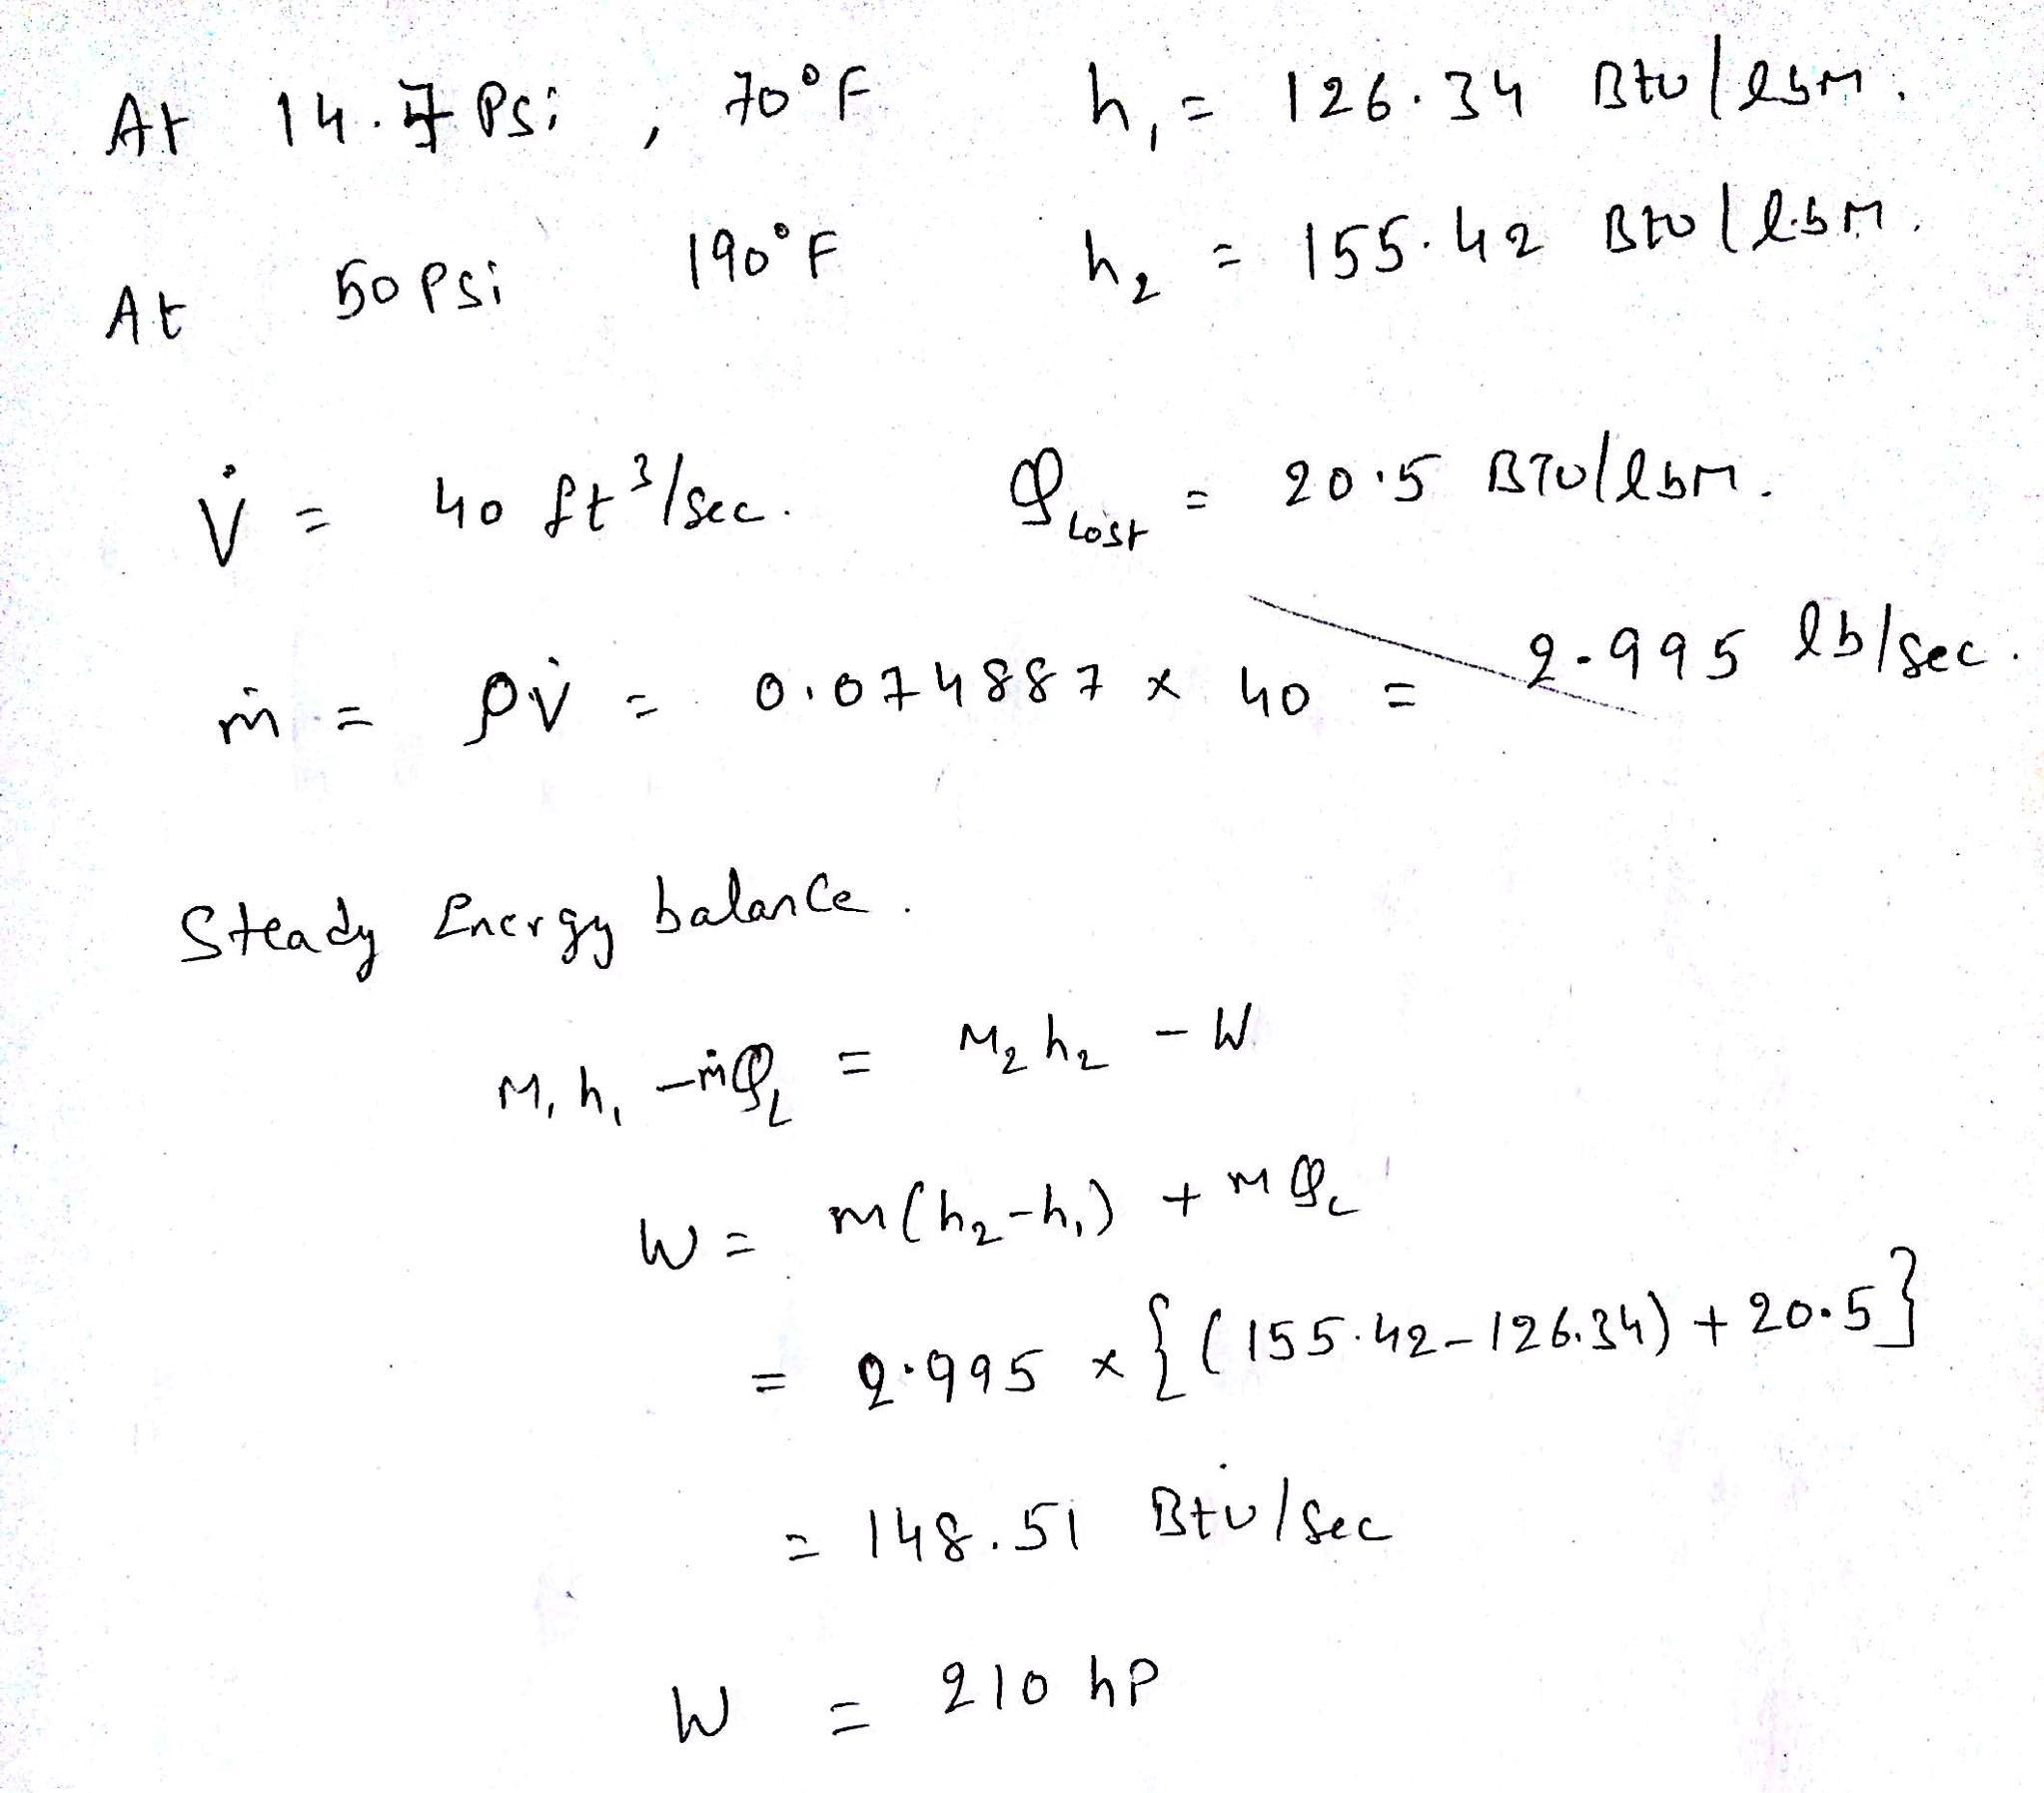 At 14.7 Psi , 70°F h₁ = 126.34 Btu/lbm.
At 50 Psi 190°F h₂ = 155.42 Btu/lbm.
V̇ = 40 ft³/sec. Q_Lost = 20.5 BTU/lbm.
ṁ = ρV̇ = 0.074887 × 40 = 2.995 lb/sec.
Steady Energy balance.
M₁h₁ - ṁQ_L = M₂h₂ - W
W = m(h₂-h₁) + mQ_L
= 2.995 × {(155.42-126.34) + 20.5}
= 148.51 Btu/sec
W = 210 hP